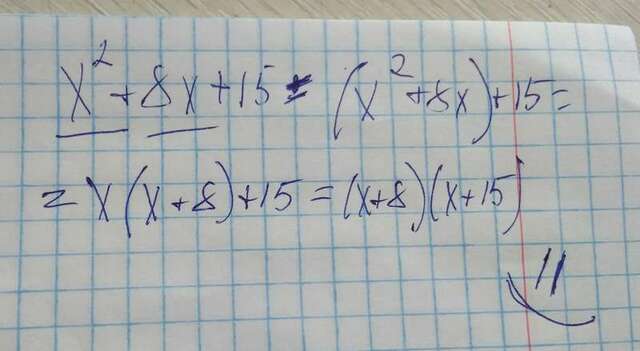 x² + 8x + 15 = (x² + 8x) + 15 =
= x(x + 8) + 15 = (x + 8)(x + 15)